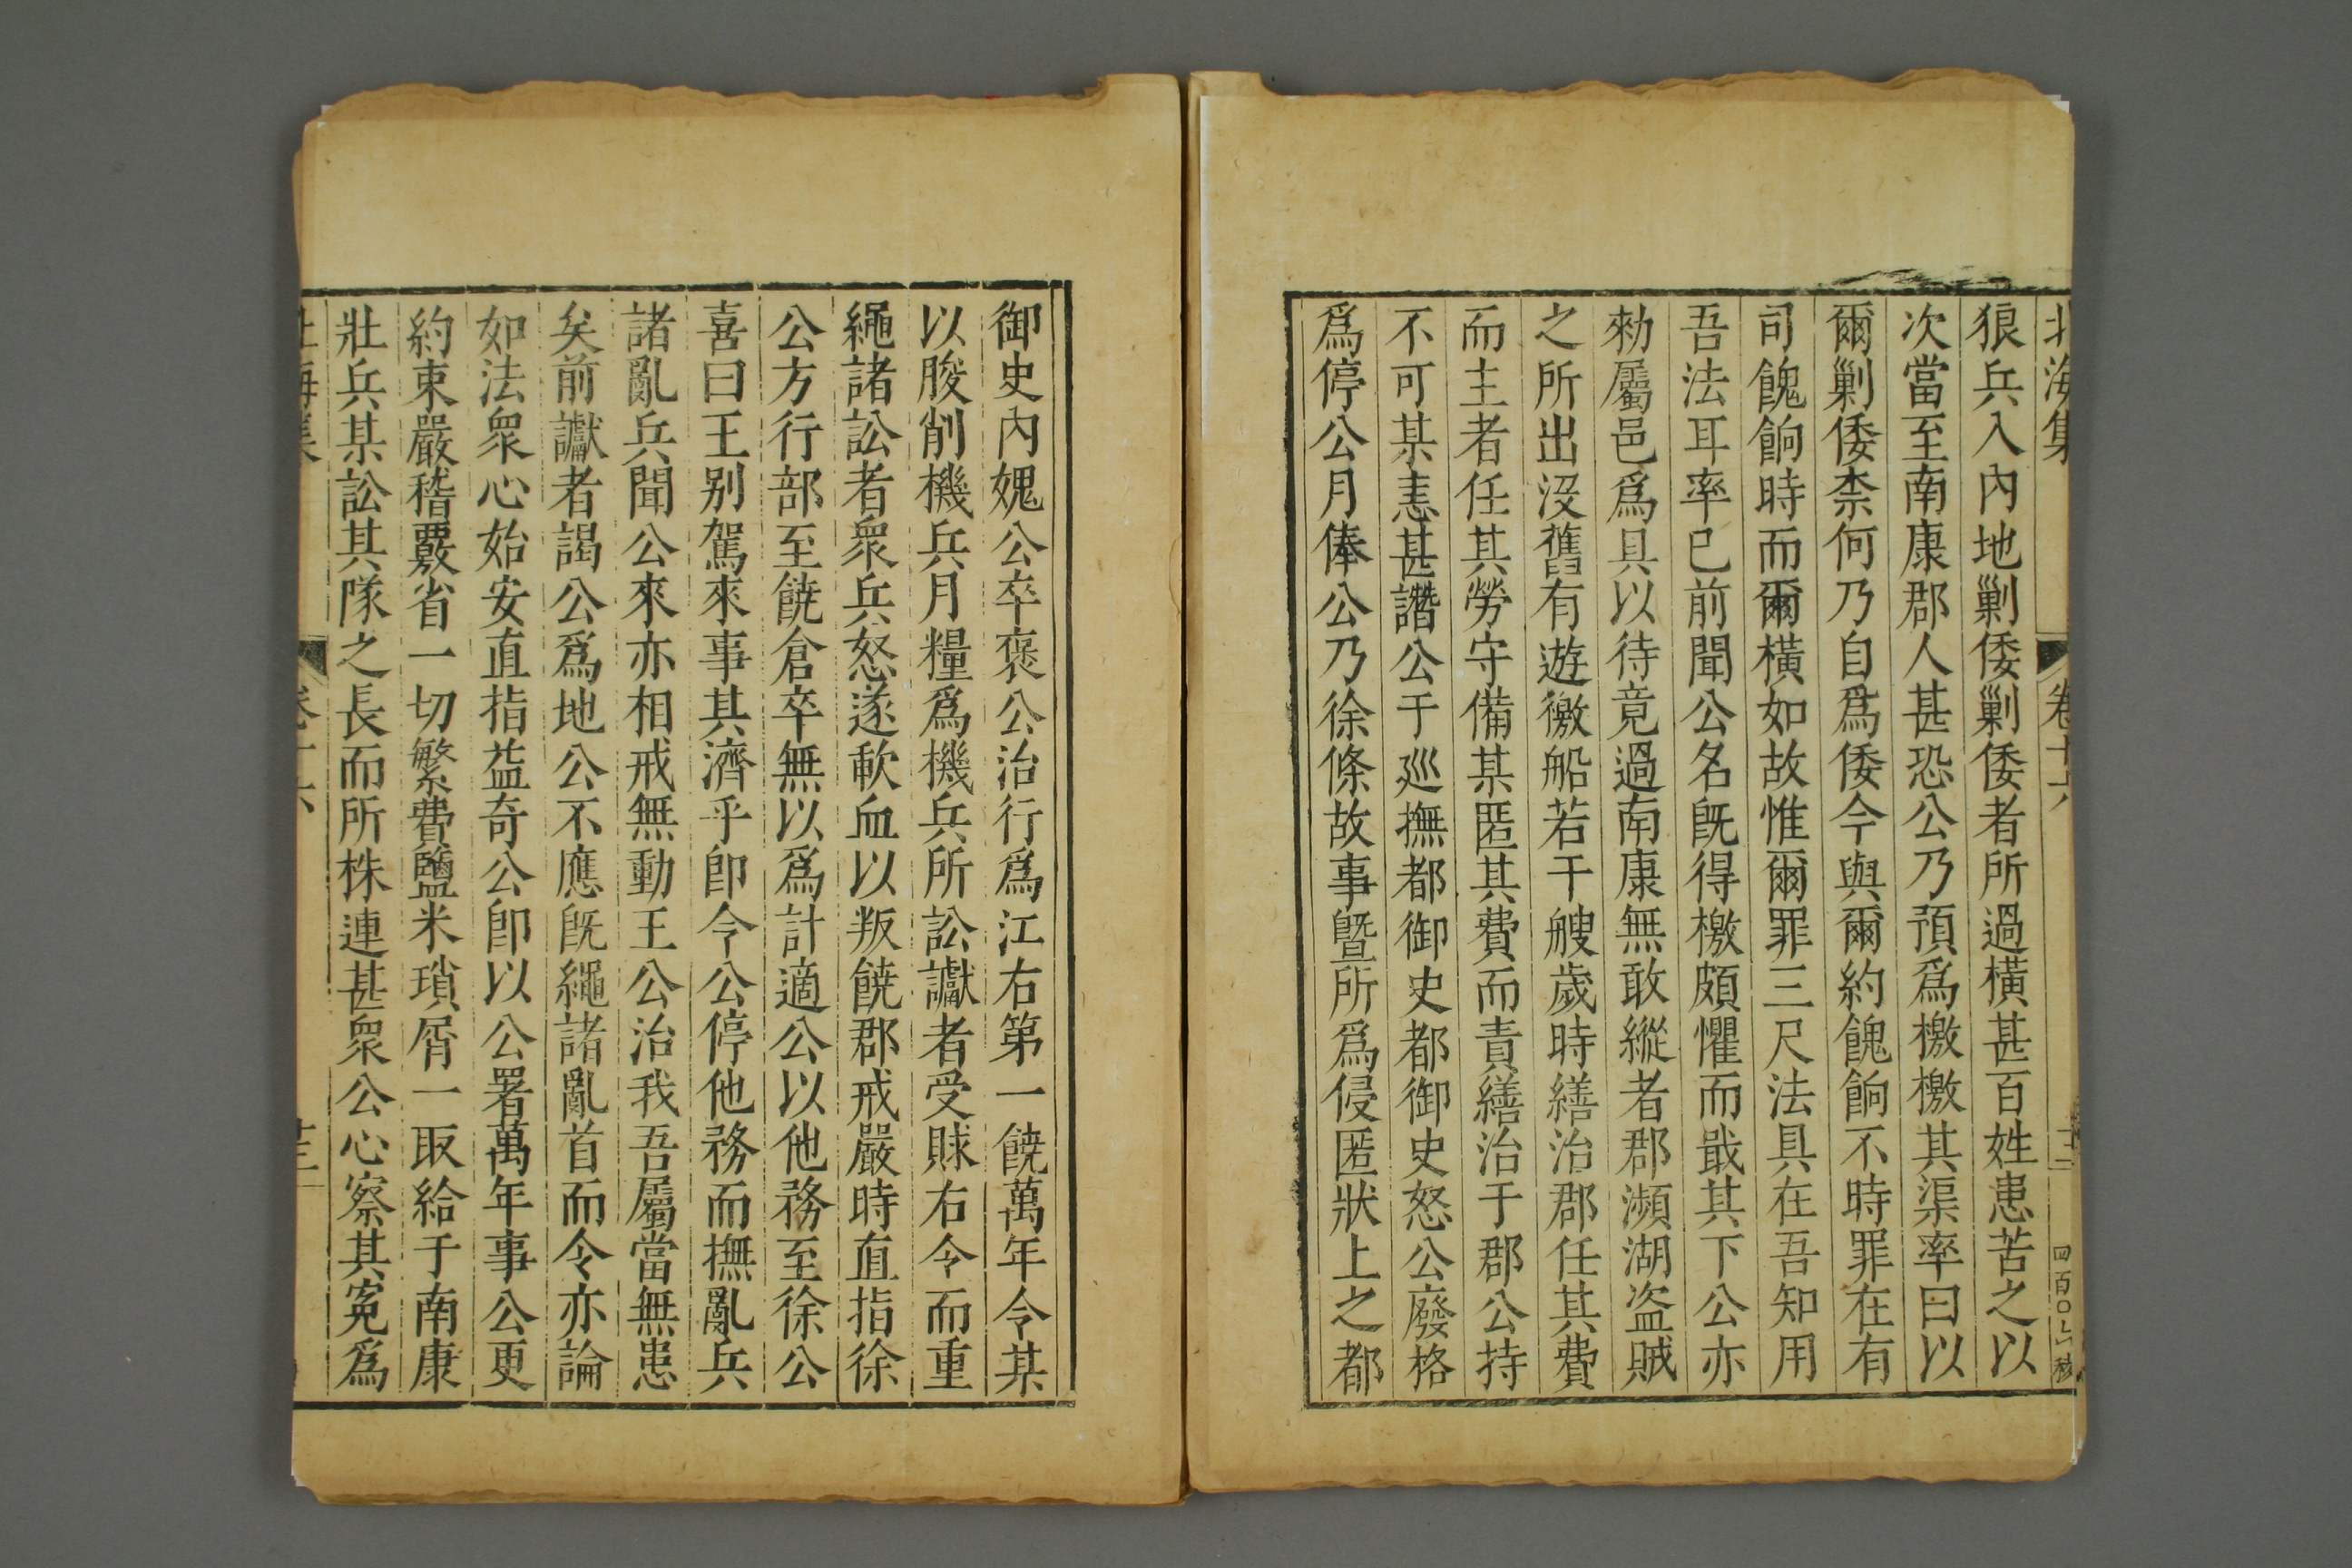 北海集 卷十六 十二 四百〇
狼兵入內地剿倭剿倭者所過橫甚百姓患苦之以
次當至南康郡人甚恐公乃預爲檄檄其渠率曰以
爾剿倭柰何乃自爲倭今與爾約餽餉不時罪在有
司餽餉時而爾橫如故惟爾罪三尺法具在吾知用
吾法耳率已前聞公名旣得檄頗懼而戢其下公亦
勑屬邑爲具以待竟過南康無敢縱者郡瀕湖盜賊
之所出沒舊有遊徼船若干艘歲時繕治郡任其費
而主者任其勞守備某匿其費而責繕治于郡公持
不可某恚甚譖公于廵撫都御史都御史怒公廢格
爲停公月俸公乃徐條故事曁所爲侵匿狀上之都
御史內媿公卒褒公治行爲江右第一饒萬年令某
以朘削機兵月糧爲機兵所訟讞者受賕右令而重
繩諸訟者衆兵怒遂歃血以叛饒郡戒嚴時直指徐
公方行部至饒倉卒無以爲計適公以他務至徐公
喜曰王别駕來事其濟乎卽令公停他務而撫亂兵
諸亂兵聞公來亦相戒無動王公治我吾屬當無患
矣前讞者謁公爲地公不應旣繩諸亂首而令亦論
如法衆心始安直指益奇公卽以公署萬年事公更
約束嚴稽覈省一切繁費鹽米瑣屑一取給于南康
壯兵某訟其隊之長而所株連甚衆公心察其寃爲
北海集 卷十六 十三